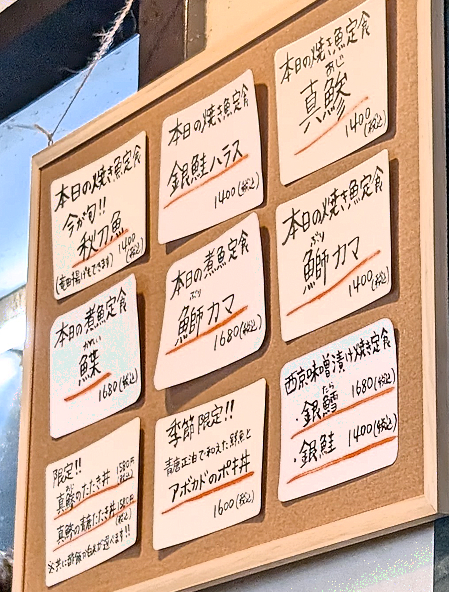 本日の焼き魚定食
今が旬!!
秋刀魚
1400(税込)
(竜田揚げもできます)
本日の焼き魚定食
銀鮭ハラス
1400(税込)
本日の焼き魚定食
あじ
真鯵
1400(税込)
本日の煮魚定食
かれい
鰈
1680(税込)
本日の煮魚定食
ぶり
鰤カマ
1680(税込)
本日の焼き魚定食
ぶり
鰤カマ
1400(税込)
限定!!
真鯵のたたき丼 1580円(税込)
真鯵の青唐たたき丼
(税込)
季節限定!!
青唐正油で和えた鮮魚と
アボカドのポキ丼
1600(税込)
西京味噌漬け焼き定食
たら
・銀鱈 1680(税込)
・銀鮭 1400(税込)